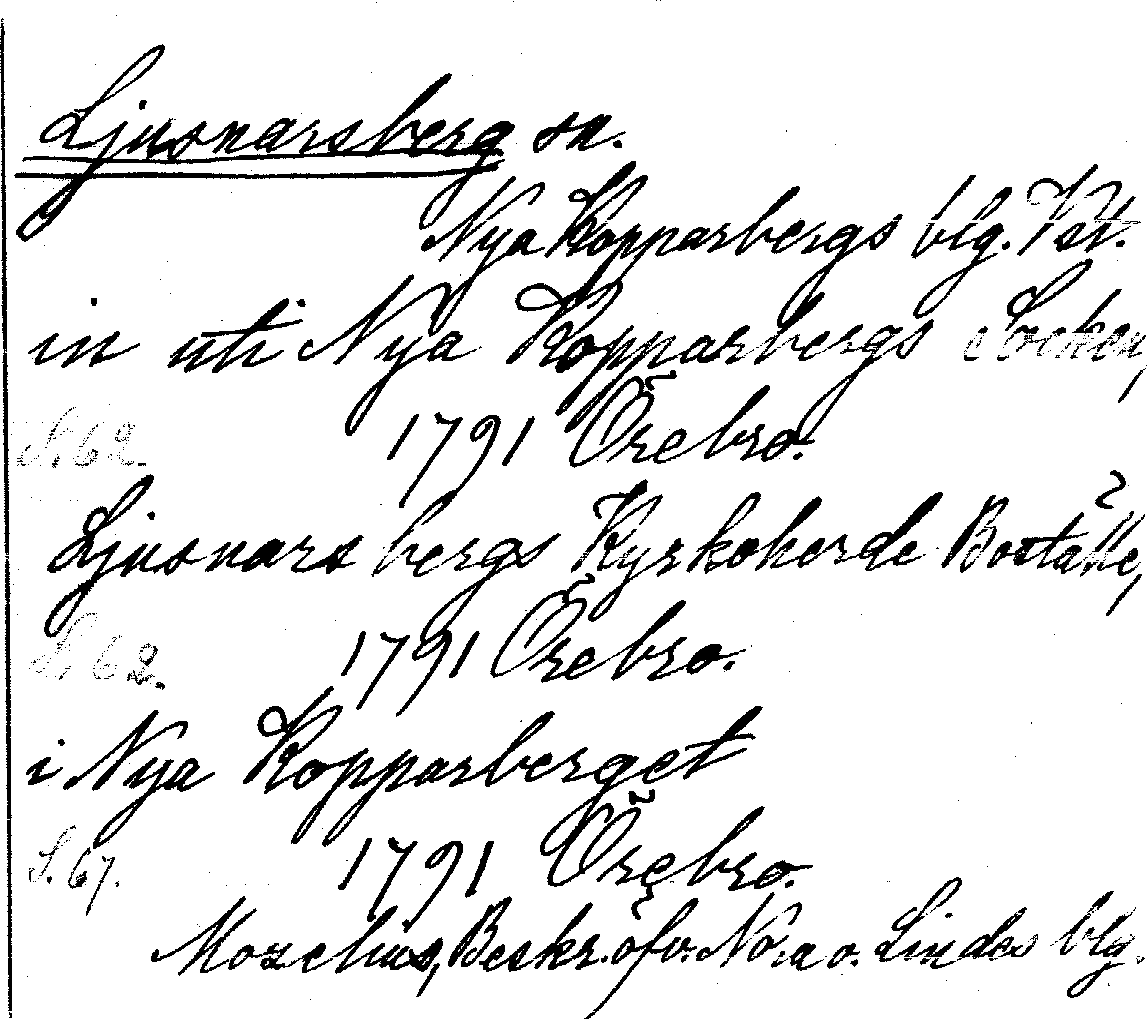 Ljusnarsberg sn.
Nya Kopparbergs blg. Vst.
in uti Nya Kopparbergs Socken,
S. 62. 1791 Örebro.
Ljusnarsbergs Kyrkoherde Boställe,
S. 62. 1791 Örebro.
i Nya Kopparberget
S. 67. 1791 Örebro.
Mozelius, Beskr. öfv. Nora o. Lindes blg.